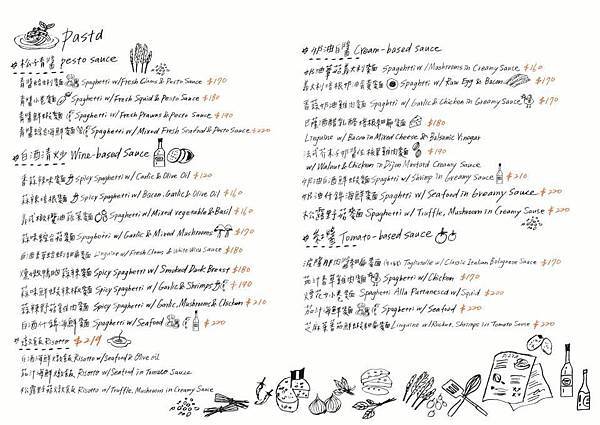 Pasta
#松子青醬 pesto sauce
青醬蛤蜊麵 Spaghetti w/Fresh Clams & Pesto Sauce $170
青醬小卷麵 Spaghetti w/Fresh Squid & Pesto Sauce $180
青醬鮮蝦麵 Spaghetti w/Fresh Prawns & Pesto Sauce $190
青醬綜合海鮮麵 Spaghetti w/Mixed Fresh Seafood & Pesto Sauce $220
#白酒清炒 Wine-based Sauce
香蒜辣味麵 Spicy Spaghetti w/Garlic & Olive Oil $120
蒜辣培根麵 Spicy Spaghetti w/Bacon, Garlic & Olive Oil $160
Spaghetti w/Mixed vegetable & Basil $160
蒜味綜合菇麵 Spaghetti w/Garlic & Mixed Mushrooms $170
Linguine w/Fresh Clams & White Wine Sauce $180
蒜辣麵 Spicy Spaghetti w/Smoked Duck Breast $180
蒜味鮮蝦辣麵 Spicy Spaghetti w/Garlic & Shrimps $190
蒜辣野菇雞肉麵 Spicy Spaghetti w/Garlic, Mushroom & Chicken $210
白酒什錦海鮮麵 Spaghetti w/Seafood $220
#燉飯 Risotto $219
白酒海鮮燉飯 Risotto w/Seafood & Olive oil
茄汁海鮮燉飯 Risotto w/Seafood in Tomato Sauce
松露野菇燉飯 Risotto w/Truffle, Mushroom in Creamy Sauce
#奶油白醬 Cream-based sauce
奶油蘑菇義大利麵 Spaghetti w/Mushrooms in Creamy Sauce $160
義大利培根奶油蛋黃麵 Spaghetti w/Raw Egg & Bacon $170
香蒜奶油雞肉麵 Spaghetti w/Garlic & Chicken in Creamy Sauce $170
巴薩米醋乳酪培根細扁麵 $180
Linguine w/Bacon in Mixed Cheese & Balsamic Vinegar
法式芥末籽 $190
w/Walnut & Chicken in Dijon Mustard Creamy Sauce
奶油白酒鮮蝦麵 Spaghetti w/Shrimp in Creamy Sauce $210
奶油什錦海鮮麵 Spaghetti w/Seafood in Creamy Sauce $220
松露野菇麵 Spaghetti w/Truffle, Mushroom in Creamy Sauce $220
#紅醬 Tomato-based sauce
波隆那肉醬 Tagliatelle w/Classic Italian Bolognese Sauce $170
茄汁雞麵 Spaghetti w/Chicken $170
煙花小卷麵 Spaghetti Alla Puttanesca w/Squid $200
茄汁海鮮麵 Spaghetti w/Seafood $220
Linguine w/Rocket, Shrimps in Tomato Sauce $220